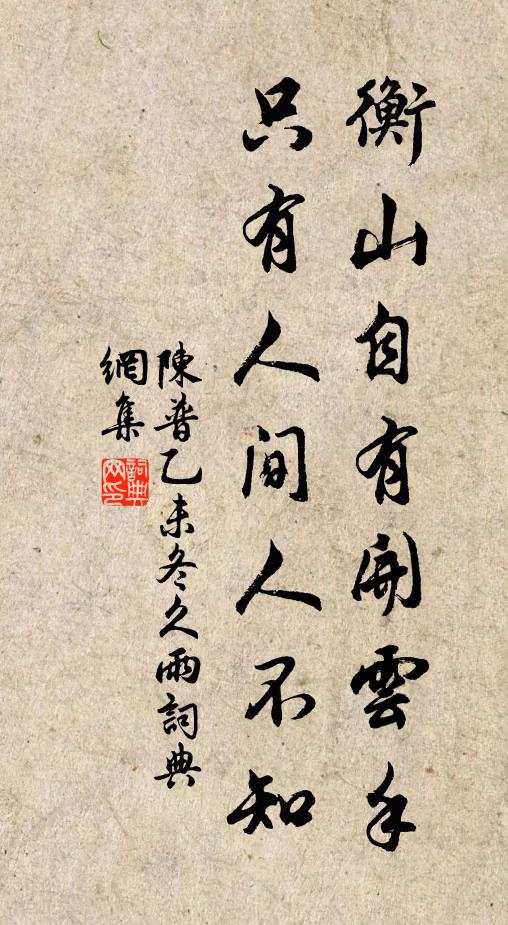 衡山自有開雲手
只有人間人不知
陳普乙未冬久雨詞典
網集
詞典網印